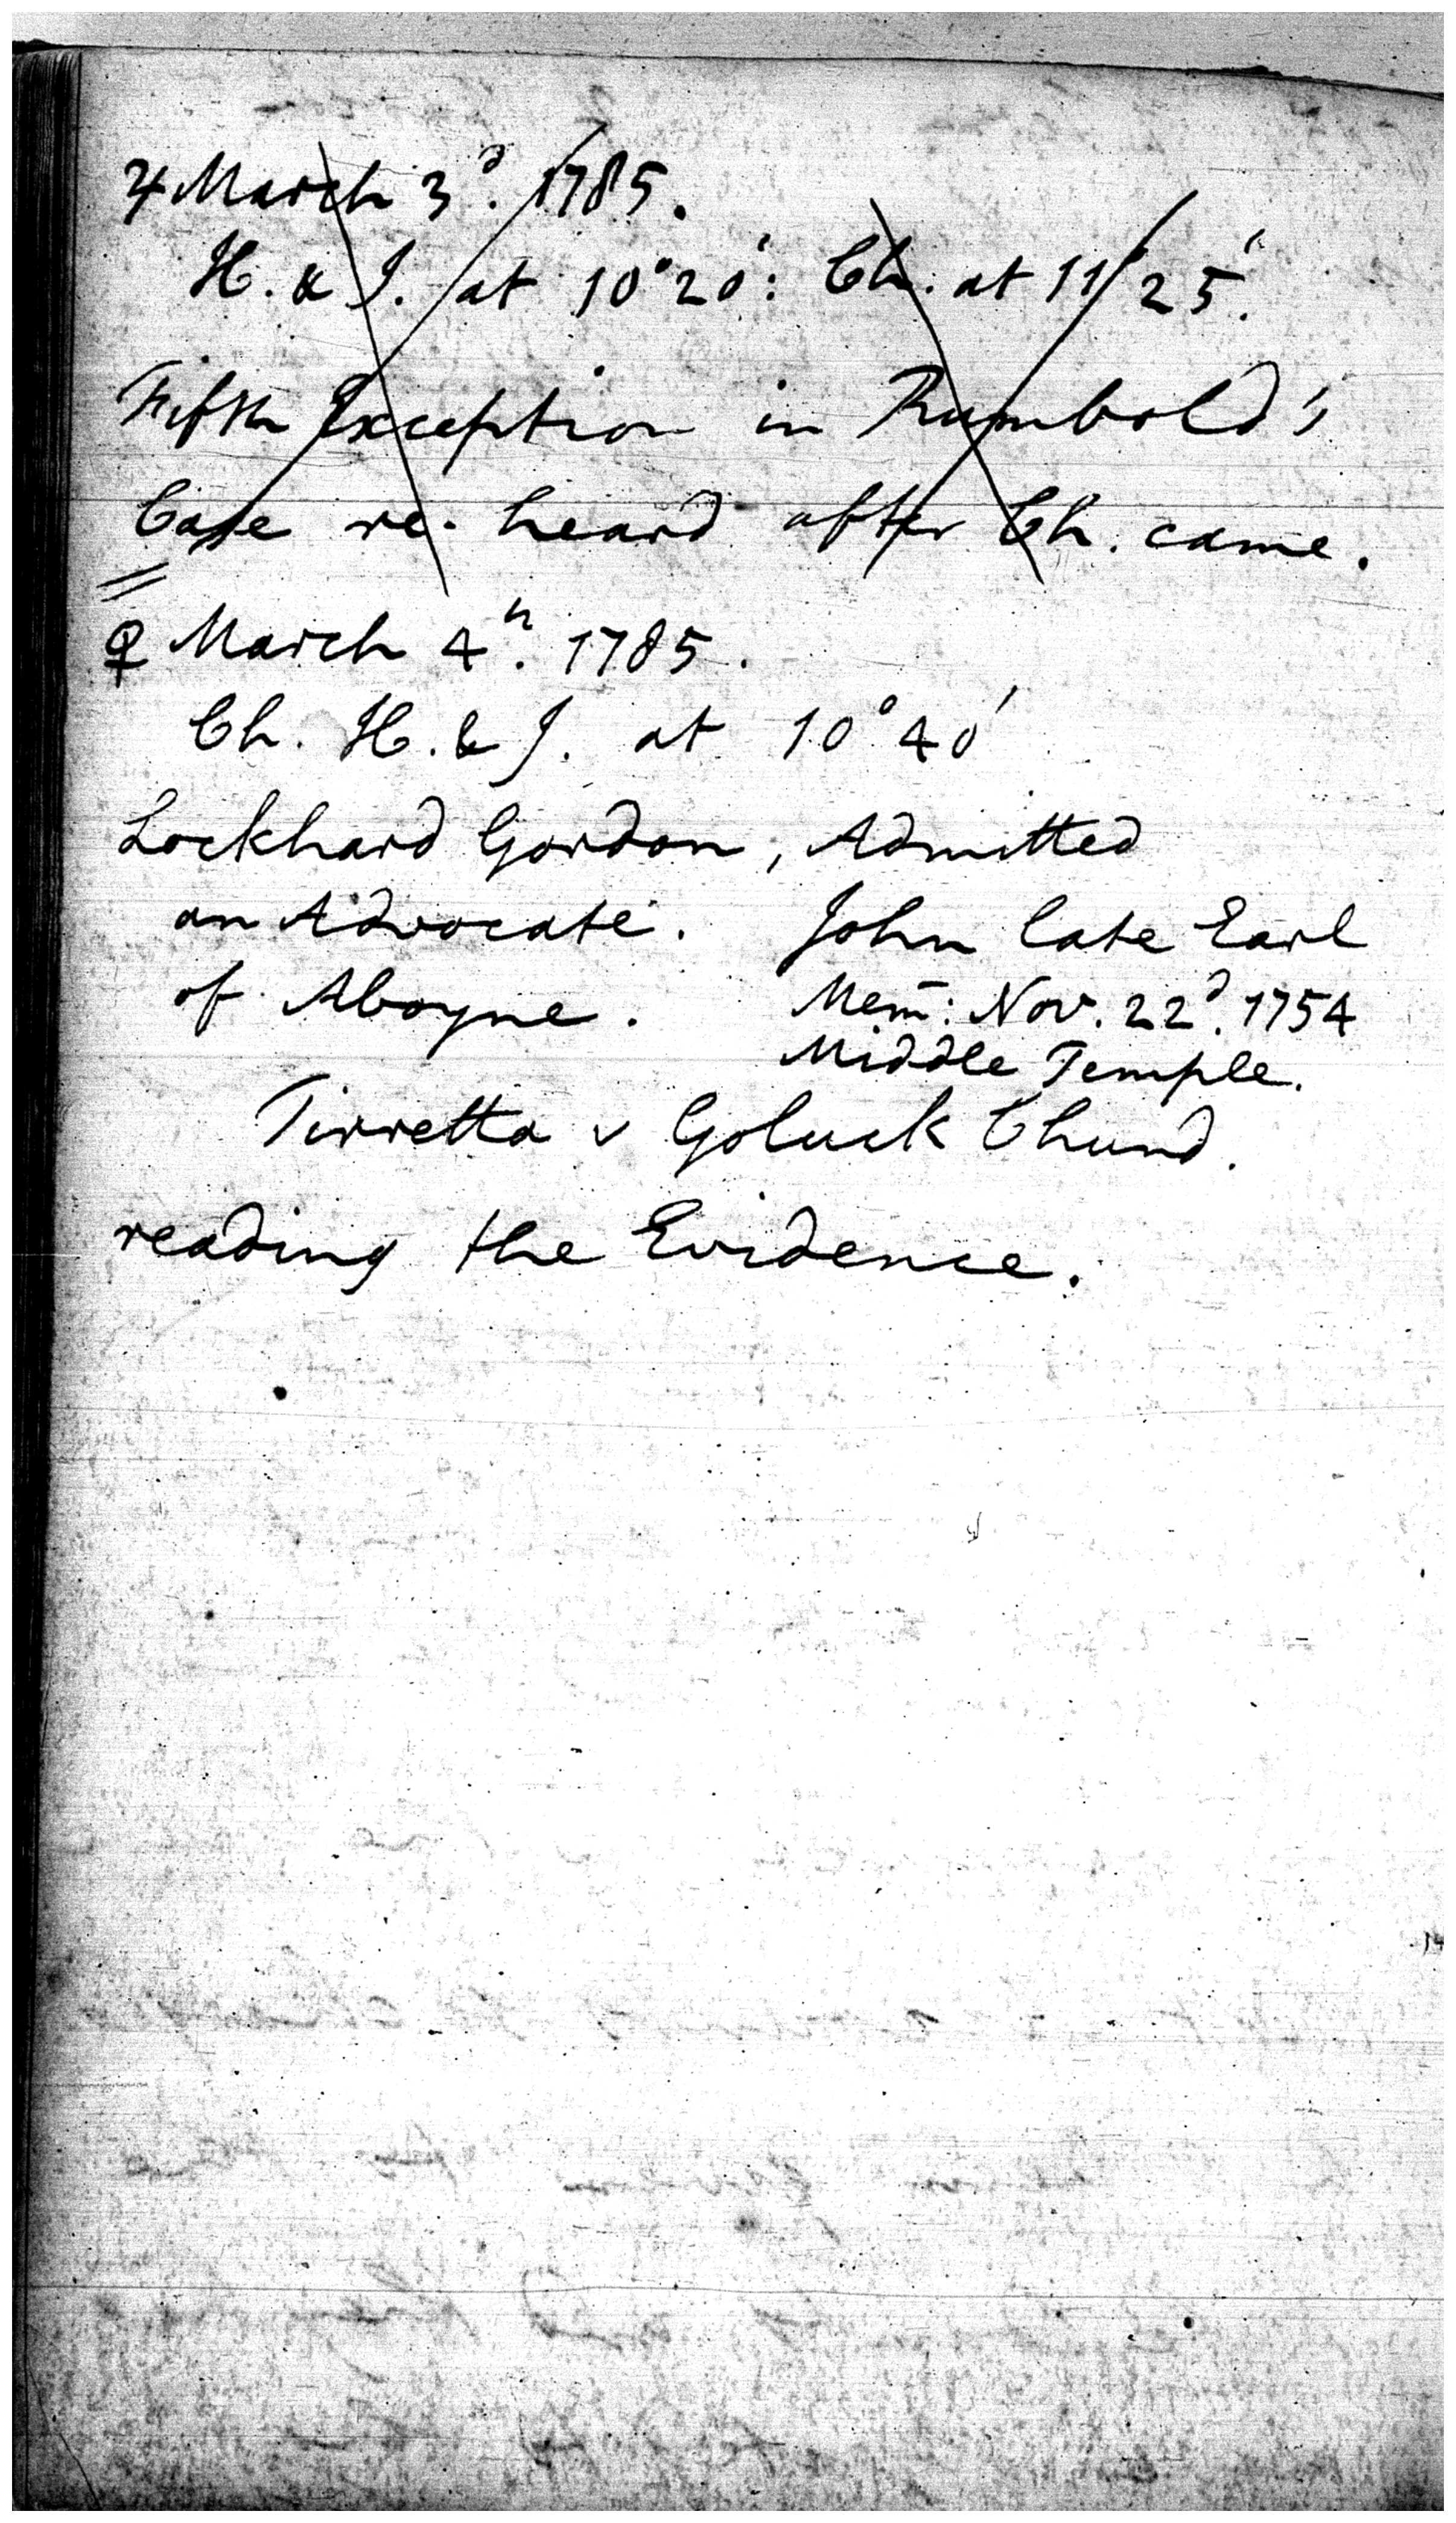 ♃ March 3ᵈ. 1785.
H. & J. at 10°20′: Ch. at 11°25′.
Fifth Exception in Rumbold's
Case re-heard after Ch. came.
♀ March 4ʰ. 1785.
Ch. H. & J. at 10°40′
Lockhard Gordon, Admitted
an Advocate. John late Earl
of Aboyne. Mem̄: Nov. 22ᵈ. 1754
Middle Temple.
Tirretta v Goluck Chund.
reading the Evidence.